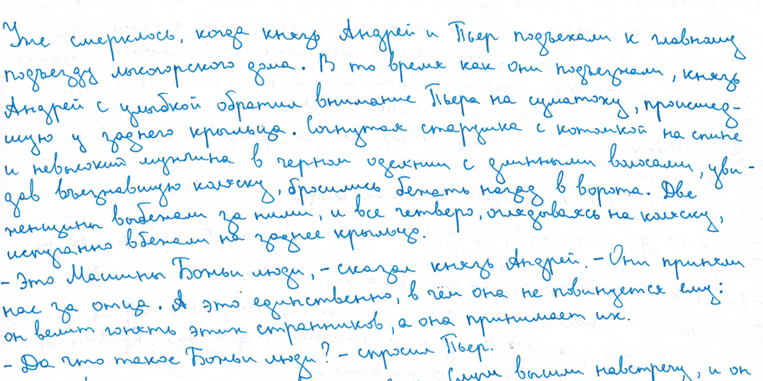 Уже смерклось, когда князь Андрей и Пьер подъехали к главному
подъезду лысогорского дома. В то время как они подъезжали, князь
Андрей с улыбкой обратил внимание Пьера на суматоху, происшед-
шую у заднего крыльца. Согнутая старушка с котомкой на спине
и невысокий мужчина в черном одеянии с длинными волосами, уви-
дав въезжавшую коляску, бросились бежать назад в ворота. Две
женщины выбежали за ними, и все четверо, оглядываясь на коляску,
испуганно вбежали на заднее крыльцо.
- Это Машины Божьи люди, - сказал князь Андрей. - Они приняли
нас за отца. А это единственно, в чём она не повинуется ему:
он велит гонять этих странников, а она принимает их.
- Да что такое Божьи люди? - спросил Пьер.
вышли навстречу, и он